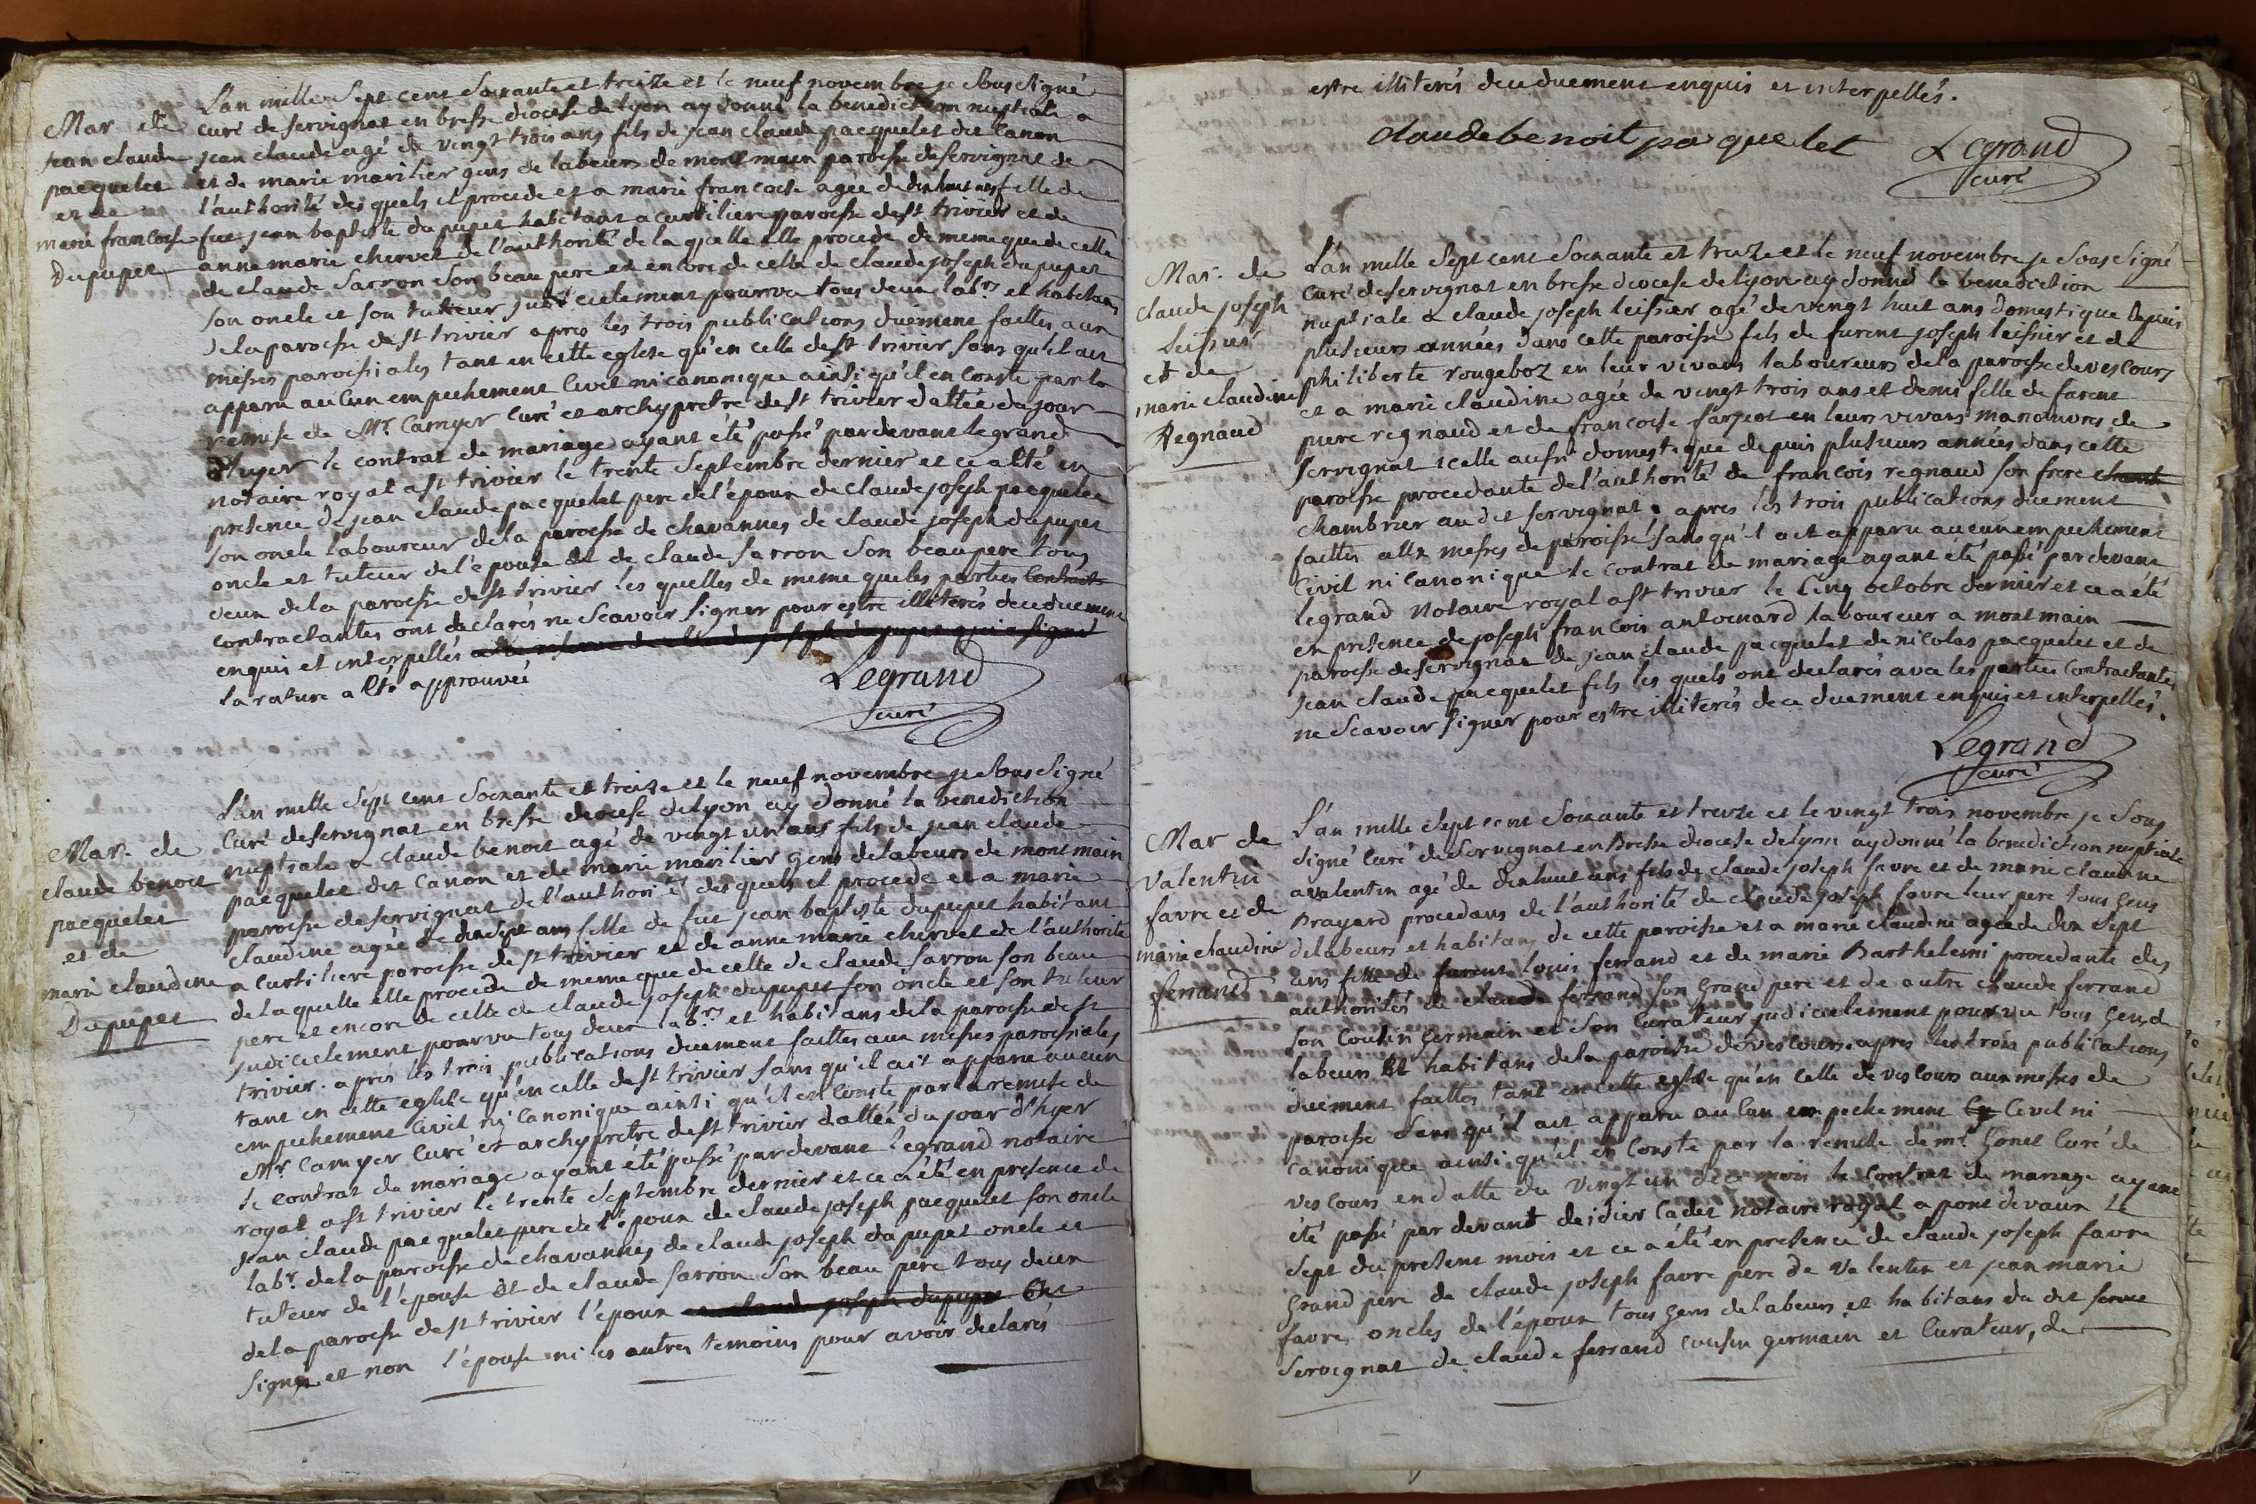 Mar de
jean claude
pacquelet
et de
marie francoise
Dupuper
L'an mille Sept cent Soixante et treize et le neuf novembre je Soussigné
curé de servignat en bresse diocese de lyon ay donné la benediction nuptiale a
jean claude agé de vingt trois ans fils de jean claude pacquelet dit Canon
et de marie marilier gens de labeurs de mont main paroisse de servignat de
l'authorité des quels il procede et a marie francoise agée de dix huit ans fille de
fut jean baptiste du puper habitant a curtiliere paroisse de st trivier et de
anne marie chervet de l'authorité de la quelle elle procede de meme que de celle
de claude Sarron Son beau pere et encore de celle de claude joseph dupuper
son oncle et son tutteur judiciellement pourvu tous deux lab.rs et habitans
de la paroisse de st trivier apres les trois publications düement faittes aux
messes paroissiales tant en cette eglise qu'en celle de st trivier sans qu'il ait
apparu aucun empechement civil ni canonique ainsi qu'il en Conste par la
remise de Mr. Camyer Curé et archyprêtre de st trivier dattée du jour
d'hyer le contrat de mariage ayant été passé pardevant legrand
notaire royal a st trivier le trente Septembre dernier et ce a été en
presence de jean claude pacquelet pere de l'époux de claude joseph pacquelet
son oncle laboureur de la paroisse de chavannes de claude joseph dupuper
oncle et tuteur de l'épouse et de claude sarron son beau pere tous
deux de la paroisse de st trivier les quelles de meme que les parties contract
contractantes ont declarés ne Scavoir Signer pour estre illiterés de ce duement
enquis et interpellés a la reserve de claude joseph dupuper qui a signé
la rature a été approuvée
Legrand
curé
Mar. de
claude benoit
pacquelet
et de
marie claudine
Dupuper
L'an mille Sept cent Soixante et treize et le neuf novembre je Sous Signé
Curé de servignat en bresse diocese de lyon ay donné la benediction
nuptiale a claude benoit agé de vingt un ans fils de jean claude
pacquelet dit Canon et de marie marilier gens de labeurs de mont main
paroisse de servignat de l'authorité des quels il procede et a marie
claudine agée de dix sept ans fille de fut jean baptiste dupuper habitant
a curtiliere paroisse de st trivier et de anne marie chervet de l'authorité
de laquelle elle procede de meme que de celle de claude Sarron son beau
pere et encore de celle de claude joseph dupuper son oncle et son tuteur
judiciellement pourvu tous deux lab.rs et habitans de la paroisse de st
trivier. apres les trois publications duement faittes aux messes paroissiales
tant en cette eglise qu'en celle de st trivier sans qu'il ait apparu aucun
empechement civil ni canonique ainsi qu'il en Conste par la remise de
Mr Camyer Curé et archyprêtre de st trivier dattée du jour d'hyer
le contrat de mariage ayant été passé pardevant legrand notaire
royal a st trivier le trente Septembre dernier et ce a été en presence de
jean claude pacquelet pere de l'époux de claude joseph pacquelet son oncle
lab.r de la paroisse de chavannes de claude joseph dupuper oncle et
tuteur de l'épouse et de claude sarron Son beau pere tous deux
de la paroisse de st trivier l'époux et claude joseph dupuper ont
signé et non l'épouse ni les autres temoins pour avoir declarés
estre illiterés de ce duement enquis et interpellés.
claude benoit paquelet
Legrand
curé
Mar. de
claude joseph
leissier
et de
marie claudine
Regnaud
L'an mille Sept cent Soixante et treize et le neuf novembre je Sous Signé
Curé de servignat en bresse diocese de lyon ay donné la benediction
nuptiale a claude joseph leissier agé de vingt huit ans domestique depuis
plusieurs années dans cette paroisse fils de furent joseph leissier et de
philiberte rougeboz en leur vivans laboureurs de la paroisse de vescours
et a marie claudine agée de vingt trois ans et demi fille de furent
piere regnaud et de francoise farjeot en leurs vivans manœuvres de
servignat icelle aussi domestique depuis plusieurs années dans cette
paroisse procedante de l'authorité de francois regnaud son frere chamb
chambrier au dit servignat. apres les trois publications duement
faittes aux messes de paroisse sans qu'il ait apparu aucun empechement
Civil ni Canonique le contrat de mariage ayant été passé par devant
legrand Notaire royal a st trivier le Cinq octobre dernier et ce a été
en presence de joseph francois antoinard laboureur a mont main
paroisse de servignat de jean claude pacquelet de nicolas pacquelet et de
jean claude pacquelet fils les quels ont declarés avec les parties contractantes
ne Scavoir signer pour estre illiterés de ce duement enquis et interpellés.
Legrand
curé
Mar de
Valentin
favre et de
marie claudine
ferrand
L'an mille Sept cent Soixante et treize et le vingt trois novembre je Sous
signé Curé de Servignat en Bresse diocese de lyon ay donné la benediction nuptiale
a valentin agé de dix huit ans fils de claude joseph favre et de marie claudine
Brayard procedans de l'authorité de claude joseph favre leur pere tous gens
de labeurs et habitans de cette paroisse et a marie claudine agée de dix sept
ans fille de furent louis ferrand et de marie Barthelemi procedante des
authorités de claude ferrand son grand pere et de autre claude ferrand
son Cousin germain et Son Curateur judiciellement pourvu tous gens de
labeurs et habitans de la paroisse de vescours. apres les trois publications
duement faittes tant en cette eglise qu'en celle de vescours aux messes de
paroisse sans qu'il ait apparu aucun empechement Civil ni
canonique ainsi qu'il en Conste par la remise de mr Gonet Curé de
vescours en datte du vingt un de ce mois le contrat de mariage ayant
été passé par devant deidier Cadet notaire royal a pont de vaux le
sept du present mois et ce a été en presence de claude joseph favre
grand pere de claude joseph favre pere de Valentin et jean marie
favre oncles de l'époux tous gens de labeurs et habitans du dit serve
servignat de claude ferrand cousin germain et Curateur, de